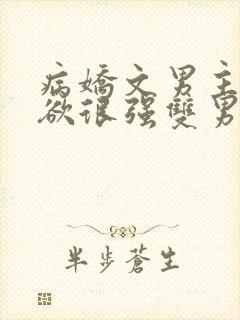 病嬌文男主
欲很强雙男
半步蒼生